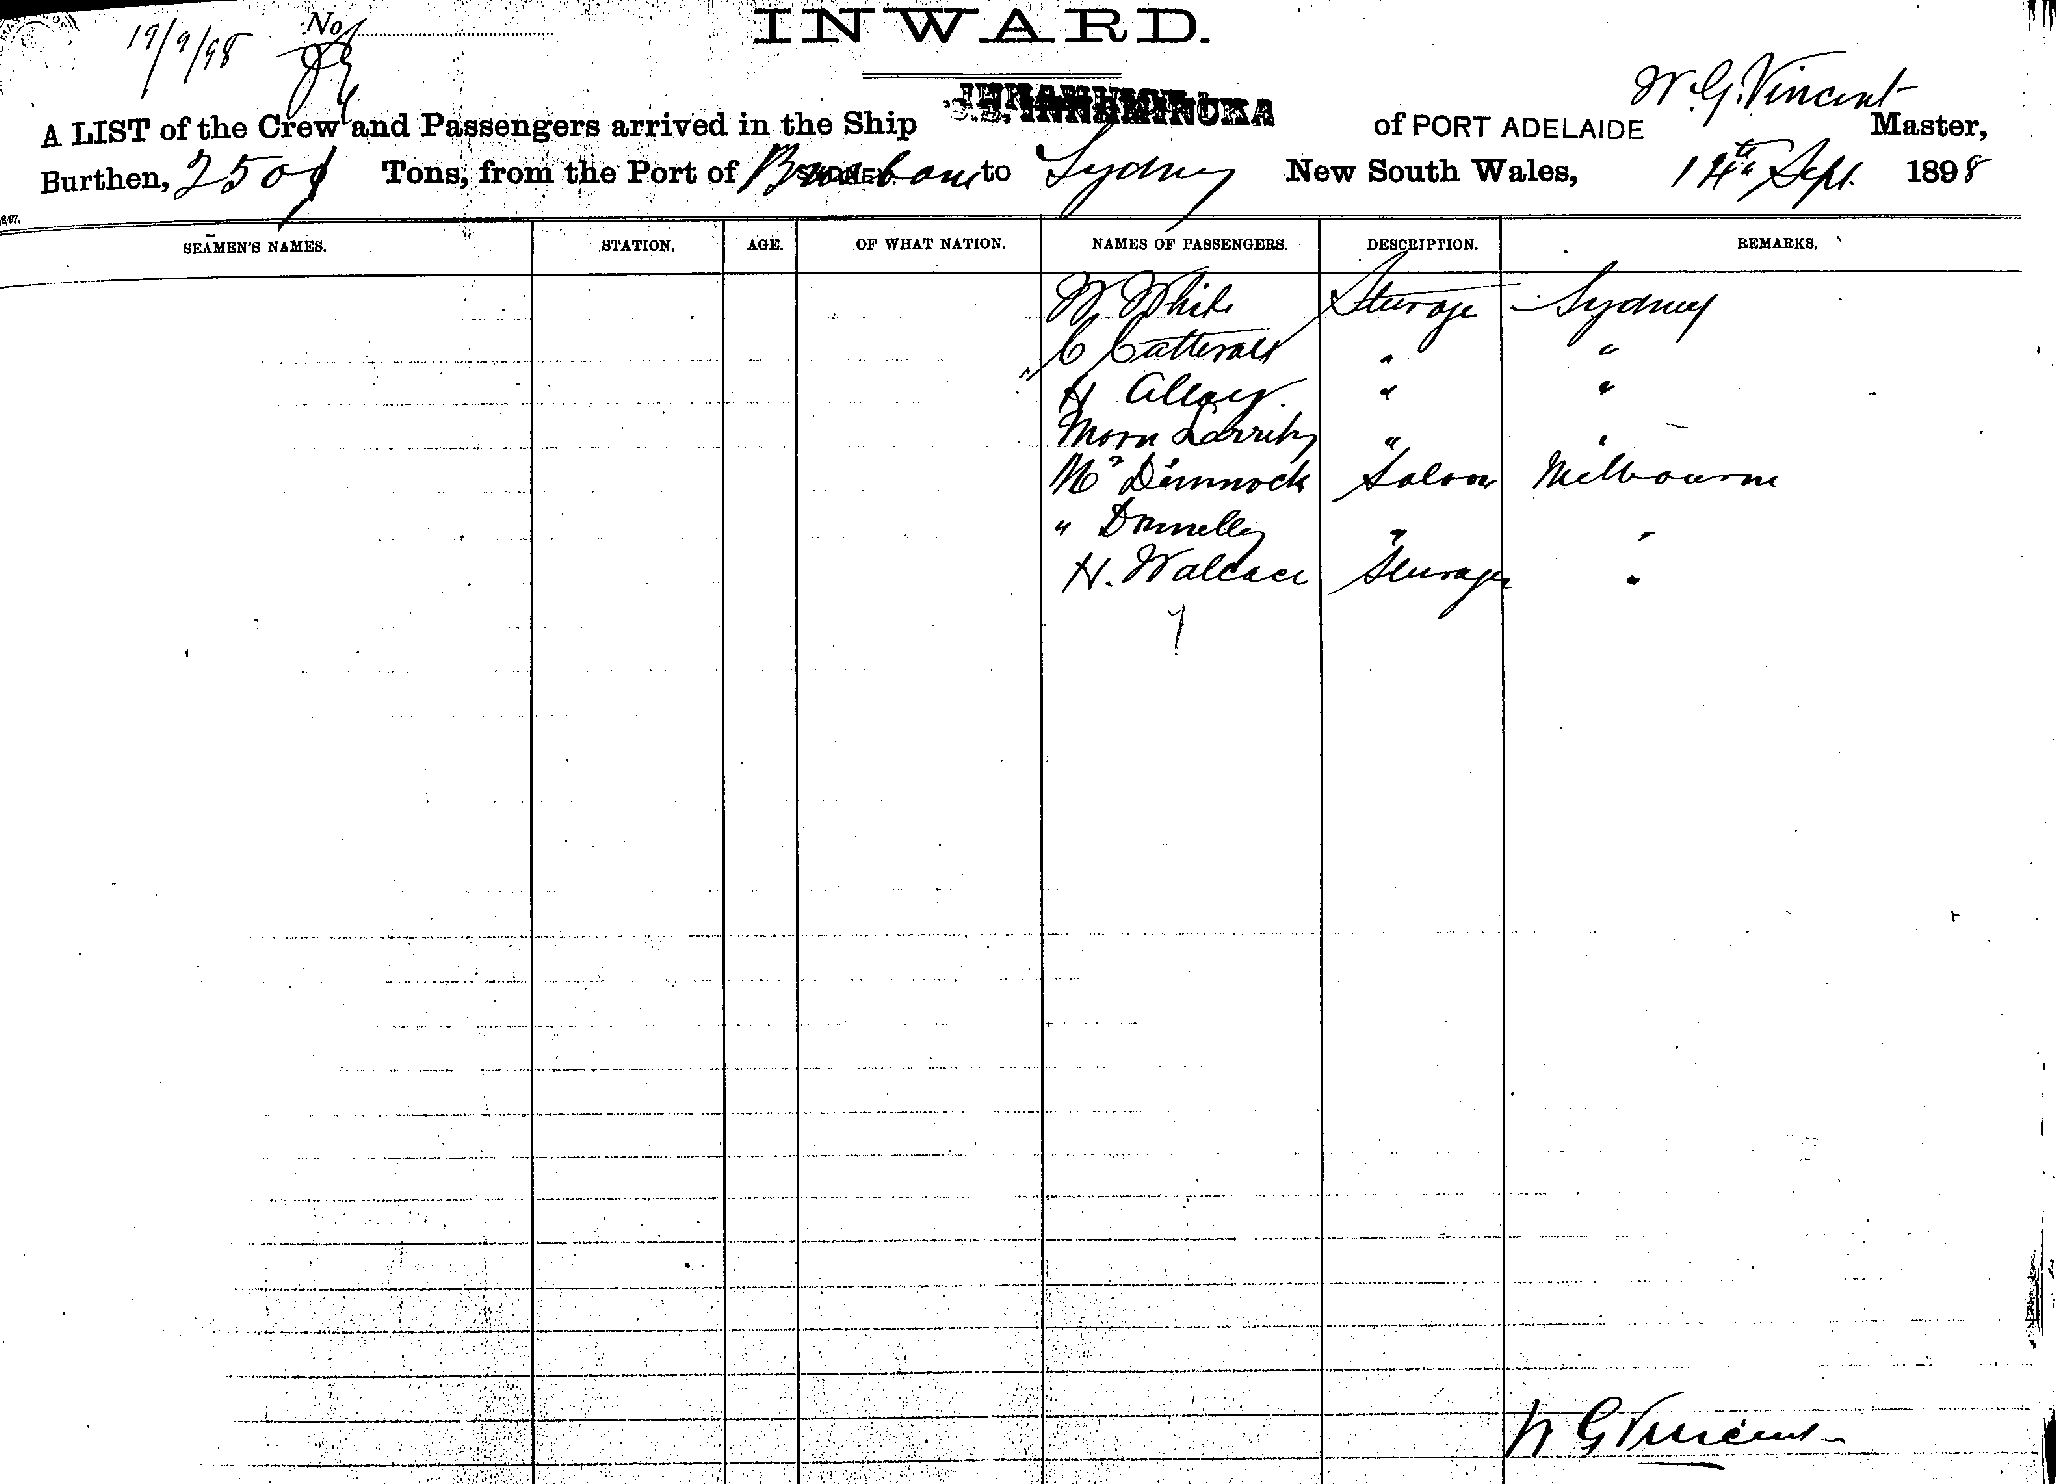 19/9/98 No
INWARD.
W. G. Vincent
A LIST of the Crew and Passengers arrived in the Ship S.S. INNAMINCKA of PORT ADELAIDE Master,
Burthen, 2501 Tons, from the Port of Brisbane to Sydney New South Wales, 14th Sept. 1898
SEAMEN'S NAMES. STATION. AGE. OF WHAT NATION. NAMES OF PASSENGERS. DESCRIPTION. REMARKS.
W White Steerage - Sydney
C Catterall " "
H Alley " "
" "
Mr Dimmock Saloon Melbourne
" Donnelly " "
H. Wallace Steerage "
7
W G Vincent